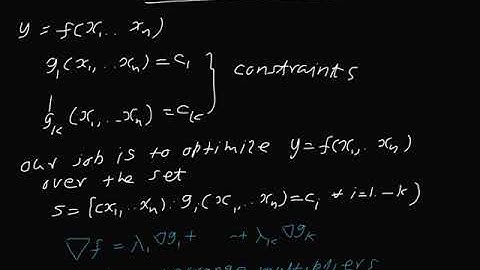 y = f(x₁.. xₙ)
g₁(x₁, .. xₙ) = c₁
constraints
gₖ(x₁, .. xₙ) = cₖ
our job is to optimize y = f(x₁, .. xₙ)
over the set
S = {(x₁, .. xₙ): gᵢ(x₁, .. xₙ) = cᵢ ∀ i=1..k}
∇f = λ₁ ∇g₁ + .. + λₖ ∇gₖ
multipliers